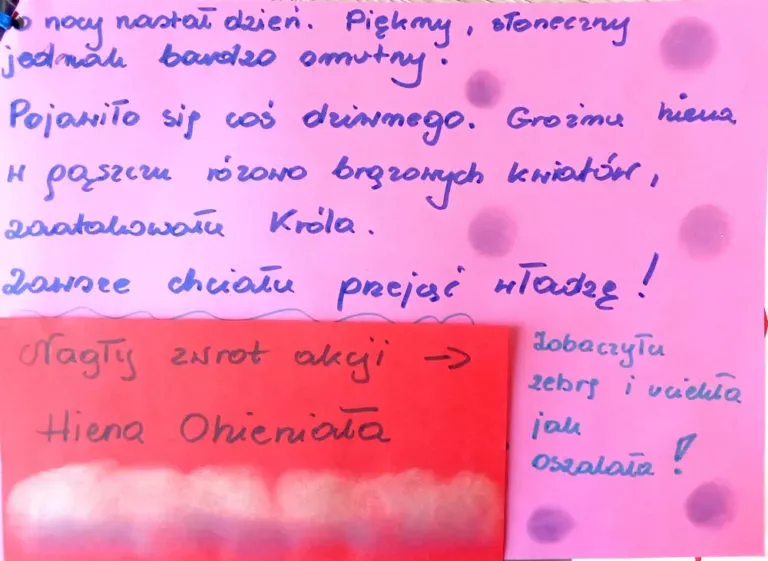 o nocy nastał dzień. Piękny, słoneczny
jednak bardzo smutny.
Pojawiło się coś dziwnego. Groźna hiena
w gąszczu różowo brązowych kwiatów,
zaatakowała Króla.
Zawsze chciała przejąć władzę!
Nagły zwrot akcji →
Hiena Oniemiała
Zobaczyła
zebrę i uciekła
jak
oszalała!